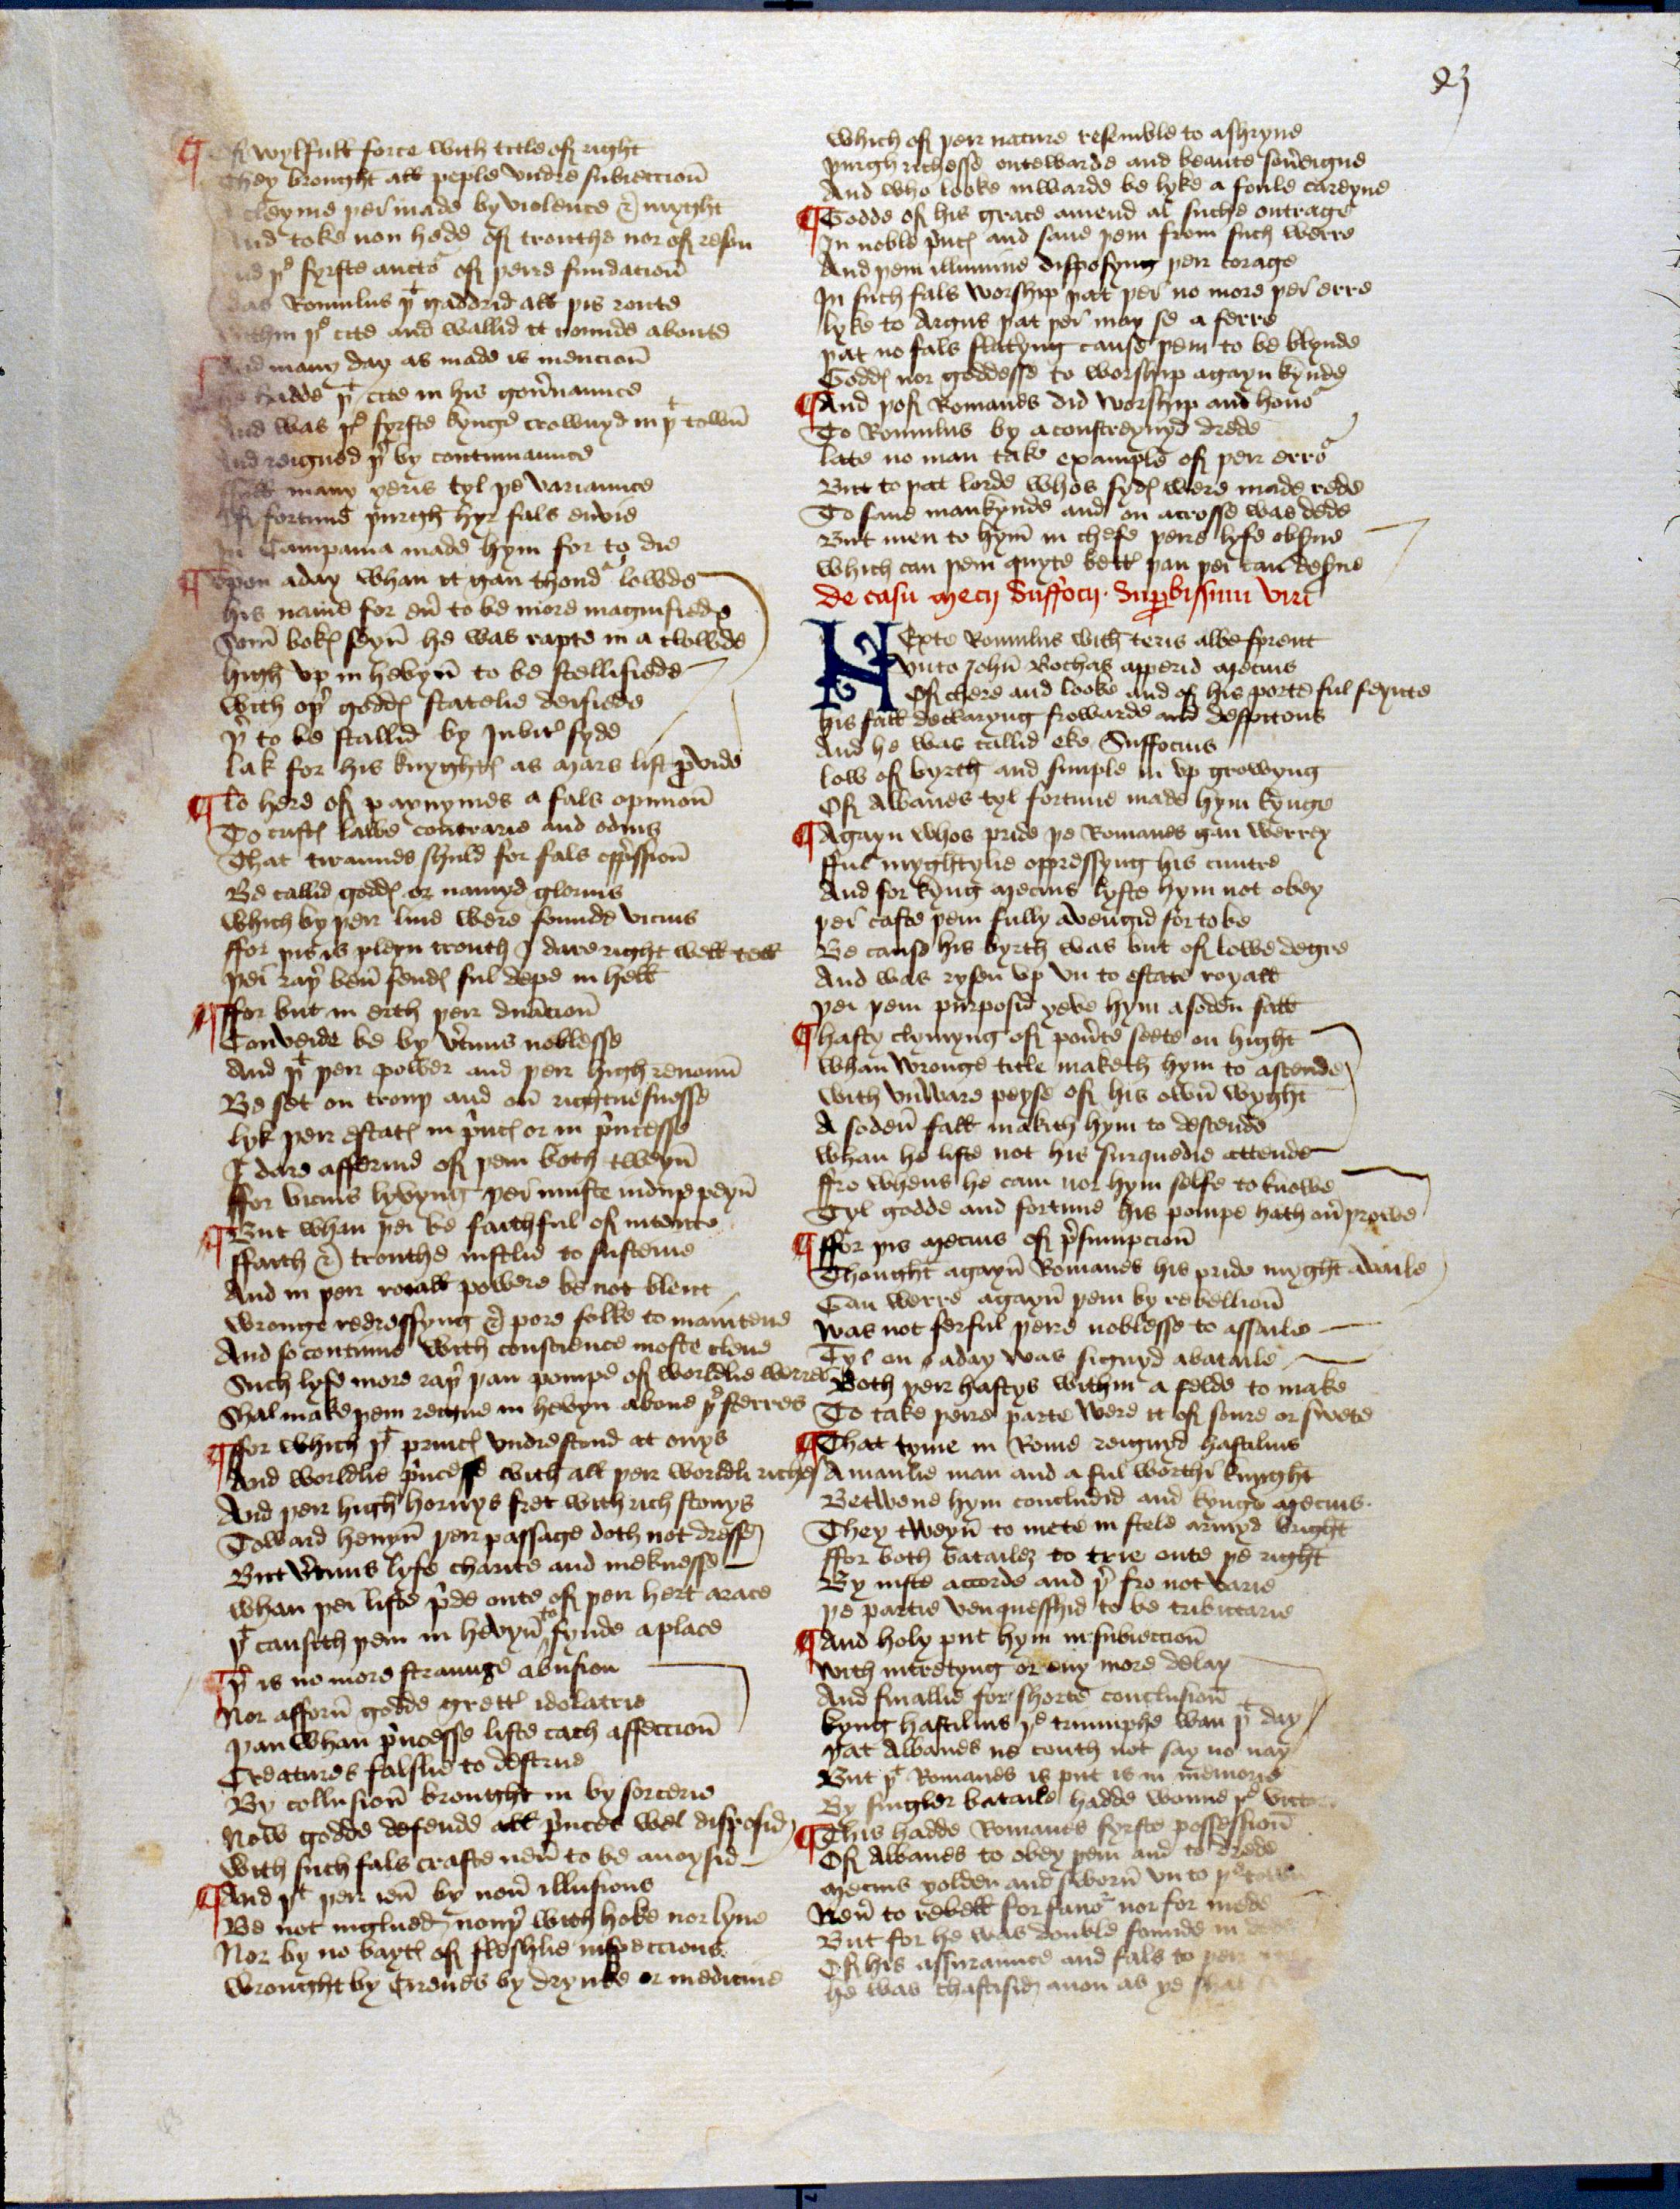 93
¶ Of wylfull force with title of right
They brought all peple vndre subieccioū
cleyme þei made by violence & myght
And toke non hede of trouthe nor of reson
And þe fyrste auctor of þeire fundacioū
Was Romulus þt gaddrid all þis route
Within þe cite and wallid it rounde aboute
And many day as made is mencioū
He hadde þt cite in his gou̓naunce
And was þe fyrste kynge crownyd in þt towū
And reigned þ̓ by contynuaunce
Full many yeris tyl þe variaunce
Of fortune þurgh hyr fals envie
In Campania made hym for to die
¶ Vpon a day whan it gan thondr lowde
his name for eu̓ to be more magnifiede
Som̄ bokes seyn̄ he was rapte in a clowde
high vp in hevyn̄ to be stellifiede
With oþ̓ goddes statelie deifiede
þ̓ to be stallid by Jubiter syde
Lak for his knyghtes as Mars list p̱vide
¶ Lo here of paynymes a fals opinioū
To cristes lawe contrarie and odius
That tirauntes shuld for fals opp̓ssioū
Be callid goddes or namyd glorius
Which by þeir line were founde vicius
ffor þis is pleyn trouth I dare right well tell
þei raþ̓ ben̄ fendes ful depe in hell
¶ ffor but in erth þeir dn̄acioū
Conveide be by v̓tuus noblesse
And þt þeir power and þeir high renoun̄
Be set on trouþ and on̄ rightuesnesse
lyk þeir estates in p̓nces or in p̓ncesse
I dare afferme of þem both tweyn̄
ffor vicius lyvyng þei muste indure peyn̄
¶ But whan þei be faithful of intente
ffaith & trouthe iustlie to susteine
And in þeir roiall powere be not blent
Wronge redressyng & pore folke to mainteine
And so continue with conscience moste clene
Such lyfe more raþ̓ þan pompe of worldlie werres
Shal make þem reigne in hevyn aboue þe sterres
¶ ffor which þt princes vndrestond at onys
And worldlie p̓ncesse with all þeir worldli riches
And þeir high hornys fret with rich stonys
Toward heuyn̄ þeir passage doth not dresse
But v̓tuus lyfe charite and meknesse
Whan þei liste p̓de oute of þeir hert arace
þt causith þem in hevyn̄ to fynde a place
¶ þ̓ is no more straunge abusion
Nor afforn̄ godde grett idolatrie
þan whan p̓ncesse liste cach affeccioū
Creatures falslie to deifie
By collusioū brought in by sorcerie
Now godde defende all p̓nces wel disposid
With such fals crafte neu̓ to be anoysid
¶ And þt þeir ien̄ by non̄ illusions
Be not englued nouþ̓ with hoke nor lyne
Nor by no baytes of fleshlie inspeccions
Wrought by Circes by drynke or medicine
Which of þeir nature resemble to a shryne
þurgh richesse outewarde and beaute sou̓eigne
And who looke inwarde be lyke a foule careyne
¶ Godde of his grace amend al suche outrage
In noble p̓nces and saue þem from such werre
And þem illumine disposyng þeir corage
In such fals worship þat þei no more þer erre
lyke to Argus þat þei may se a ferre
þat no fals flatryng cause þem to be blynde
Goddes nor goddesse to worship agayn kynde
¶ And þof Romanes did worship and honor
To Romulus by a constreynyd drede
late no man take example of þeir error
But to þat lorde whos sydes were made rede
To saue mankynde and on a crosse was dede
But men to hym̄ in chefe þeire lyfe obserue
Which can þem quyte bettr þan þei can deserue
De casu Mecij Suffocij. Sup̱bissimi viri
NExte Romulus with teris albesprent
Vnto John̄ Bochas apperid Mecius
Of chere and looke and of his porte ful feynte
his fall declaryng frowarde and despitous
And he was callid eke Suffocius
low of byrth and simple in vp growyng
Of Albanes tyl fortune made hym kynge
¶ Agayn whos pride þe Romanes gan werrey
fful myghtylie oppressyng his cuntre
And for kyng Mecius lyste hym not obey
þei caste þem fully avengid for to be
Be cause his byrth was but of lowe degre
And was rysen vp vn to estate royall
þei þem purposid yeve hym a soden fall
¶ hasty clymyng of pou̓te seete on hight
Whan wronge title maketh hym to ascende
With vnware peyse of his own̄ wyght
A soden̄ fall makith hym to descende
Whan he liste not his surquedie attende
ffro whens he cam nor hym selfe to knowe
Tyl godde and fortune his pompe hath ou̓þrowe
¶ ffor þis Mecius of p̓sumpcioū
Thought agayn̄ Romanes his pride myght availe
Gan werre agayn̄ þem by rebellioū
Was not ferful þeire noblesse to assaile
Tyl on a day was signyd a bataile
Both þeir hastys within a felde to make
To take þeire parte were it of soure or swete
¶ That tyme in Rome reignyd hastilius
A manlie man and a ful worthi knyght
Betwene hym concludid and kynge Mecius.
They tweyn̄ to mete in stele armyd bright
ffor both batailes to trie oute þe right
By iuste accorde and þ̓ fro not varie
þe partie venquesshid to be tributarie
¶ And holy put hym in subieccioū
With intretyng or eny more delay
And finallie for shorte conclusioū
kyng hastilius þe triumphe wan þt day
þat Albanes ne couth not say no nay
But þt Romanes is put is in memorie
By singler bataile hadde wonne þe victor
¶ This hadde Romanes fyrste possessioū
Of Albanes to obey þem and to drede
Mecius yolden and sworn̄ vn to þe town
Neu̓ to rebell for fauor nor for mede
But for he was double founde in dede
Of his assuraunce and fals to þeir
he was chastisid anon as ye shal